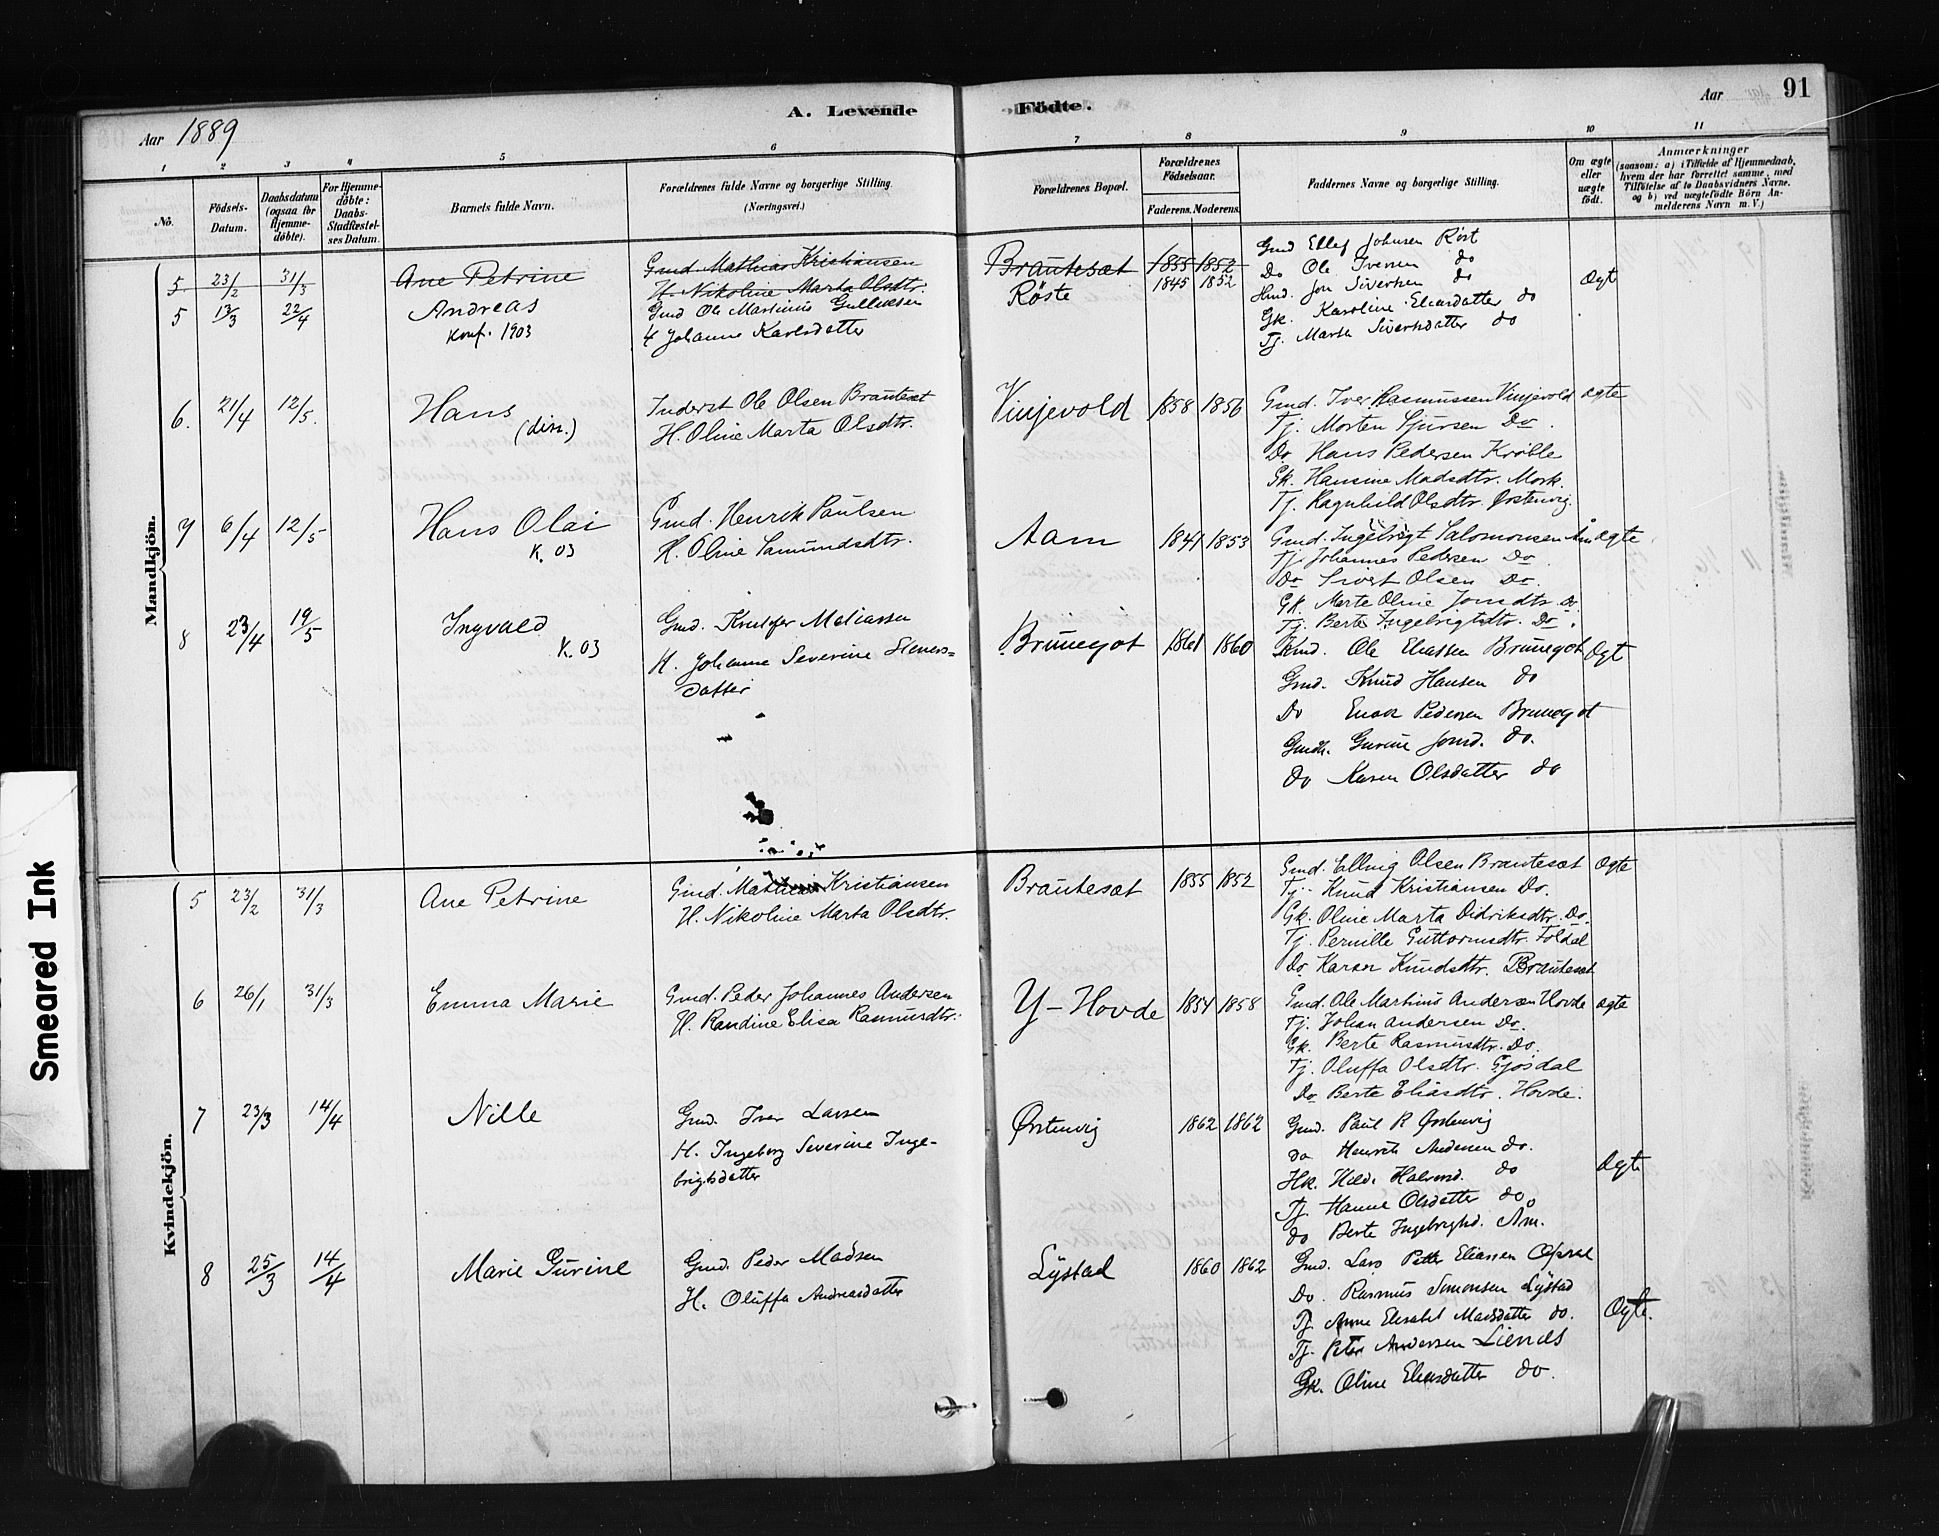 A. Levende
Födte.
Aar
91
Aar 1889
1
2
3
4
5
6
7
8
9
10
11
No.
Födsels-
Datum.
Daabsdatum
(ogsaa for
Hjemme-
döbte).
For Hjemme-
döbte:
Daabs-
Stadfæstel-
ses Datum.
Barnets fulde Navn.
Forældrenes fulde Navne og borgerlige Stilling.
(Næringsvei.)
Forældrenes Bopæl.
Forældrenes
Födselsaar.
Faderens.
Moderens.
Faddernes Navne og borgerlige Stilling.
Om ægte
eller
uægte
födt.
Anmærkninger
(saasom: a) i Tilfælde af Hjemmedaab,
hvem der har forrettet samme, med
Tilföielse af to Daabsvidners Navne,
og b) ved uægtefödte Börn An-
melderens Navn m. V.)
Mandkjön.
5. 23/2 31/3 Ane Petrine Gmd. Mathias Kristiansen Brautesæt 1855 1852
H. Nikoline Marta Olsdtr.
5 13/3 22/4 Andreas Gmd Ole Martinus Gulliksen Røste 1845 1852 Ægt
Konf. 1903 Johanne Karlsdatter
Gmd Ellef Johnsen Røst
Do Ole Iversen do
Hmd. Jon Sivertsen do
Gk. Karoline Eliasdatter do
Tj. Marta Sivertsdatter do
6. 21/4 12/5. Hans Inderst Ole Olsen Brautesæt Vinjevold 1858 1856 Gmd. Iver Rasmussen Vinjevold ægte
(diss.) H. Oline Marta Olsdtr.
Tj. Morten Sjursen Do.
Do Hans Pedersen Kroble
Gk. Hansine Madsdtr. Mork.
Tj. Ragnhild Olsdtr. Østenvig.
7 6/4 12/5 Hans Olai Gmd. Henrik Paulsen Aam 1841 1853 Gmd. Ingebrigt Salomonsen Åm ægte
K. 03 H. Oline Samundsdtr.
Tj. Johannes Pedersen Do
Do Sivert Olsen Do.
Gk. Marte Oline Jonsdtr. Do
Tj. Berte Ingebrigtsdtr. Do.
8 23/4 19/5 Ingvald Gmd. Meliassen Brunegot 1861 1860 Ole Eliassen Brunegot Ægt
K. 03 H. Johanne Severine
datter
Gmd. Knud Hansen do
Do Pedersen Brunegot
Gmdk. Gurine Jonsd. do.
Do Karen Olsdatter do
Kvindekjön.
5 23/2 31/3 Ane Petrine Gmd. Mathias Kristiansen Brautesæt 1855 1852 Gmd. Elling Olsen Brautesæt ægte
H. Nikoline Marta Olsdtr.
Tj. Knud Kristiansen Do.
Gk. Oline Marta Didriksdtr. Do.
Tj. Pernille Guttormsdtr. Foldal
Do Karen Knudsdtr. Brautesæt
6 26/1 31/3 Emma Marie Gmd. Peder Johannes Andersen Y-Hovde 1854 1858 Gmd. Ole Martinus Andersen Hovde ægte
H. Randine Elisa Rasmusdtr.
Tj. Johan Andersen Do.
Gk. Berte Rasmusdtr. Do.
Tj. Oluffa Olsdtr. Gjøsdal
Do Berte Eliasdtr. Hovde.
7 23/3 14/4 Nille Gmd. Iver Larsen Østenvig 1862 1862 Gmd. Paul R Østenvig
H. Ingeborg Severine Inge-
brigtsdatter
do Henrik Andersen do.
Hk. Hilda Halvorsd. do
Ægte
Tj. Hanne Olsdatter do
do Berte Ingebrigtsd. Åm.
8 25/3 14/4 Marie Gurine Gmd. Peder Madsen Lystad 1860 1862 Gmd. Lars Petter Eliassen
H. Oluffa Andreasdatter
Do. Rasmus Simonsen Lystad
Tj Anne Elisabet Madsdatter do.
Ægte.
Tj. Peter Andersen
Gk. Oline Eliasdatter do.
Smeared Ink